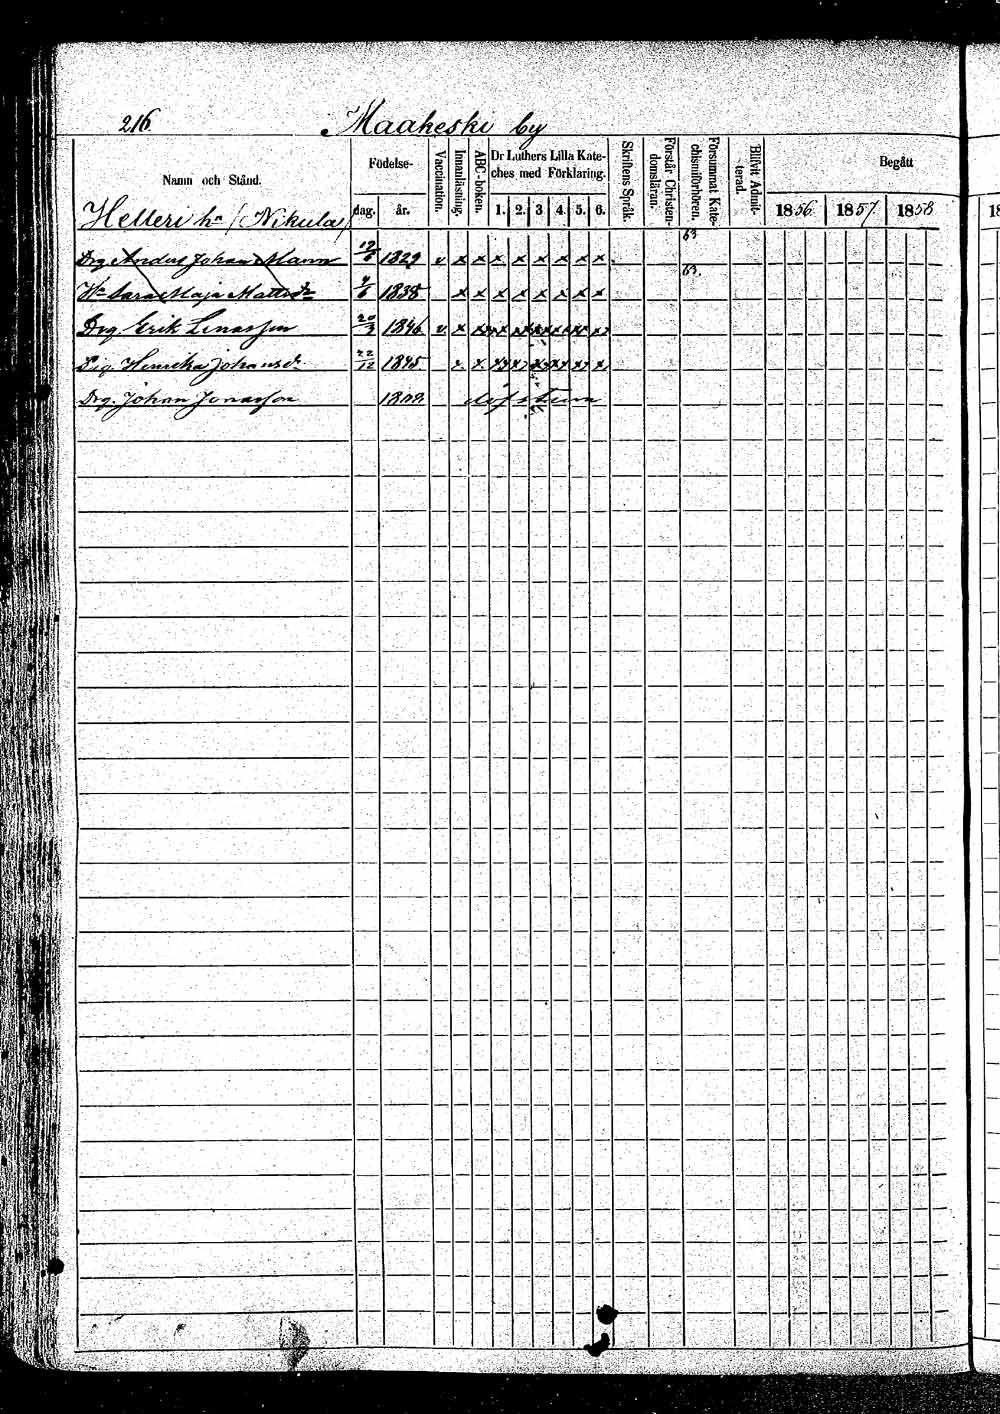 216. Maakeski by
Namn och Stånd.
Födelse-
dag. år.
Vaccination.
Innanläsning.
ABC-boken.
Dr Luthers Lilla Kate-
ches med Förklaring.
1. 2. 3 4. 5. 6.
Skriftens Språk.
Förstår Christen-
domsläran.
Försummat Kate-
chismiförhören.
Blifvit Admit-
terad.
Begått
1856. 1857 1858
Helleri hn / Nikula /
63
Drg Anders Johan Mann 12/6 1829 v x x x x x x x x
63.
Hu Sara Maja Mattsdr 4/6 1838 x x x x x x x x
Drg. Erik Linasson 20/3 1846 v x
Pig. Henrika Johansdr 22/12 1845
Drg. Johan Jonasson döfstum